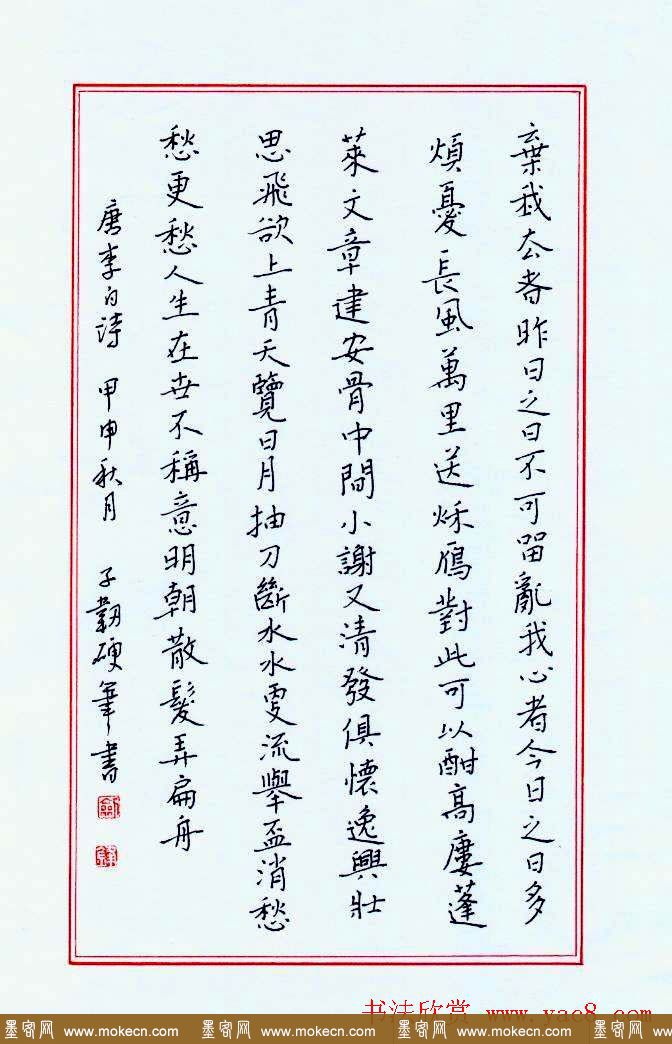 棄我去者昨日之日不可留亂我心者今日之日多
煩憂長風萬里送秋鴈對此可以酣高廔蓬
萊文章建安骨中間小謝又清發俱懷逸興壯
思飛欲上青天覽日月抽刀斷水水更流舉盃消愁
愁更愁人生在世不稱意明朝散髮弄扁舟
唐李白詩 甲申秋月 子韌硬筆書
书法欣赏 www.yac8.com
墨客网 www.mokecn.com 墨客网 www.mokecn.com 墨客网 www.mokecn.com 墨客网